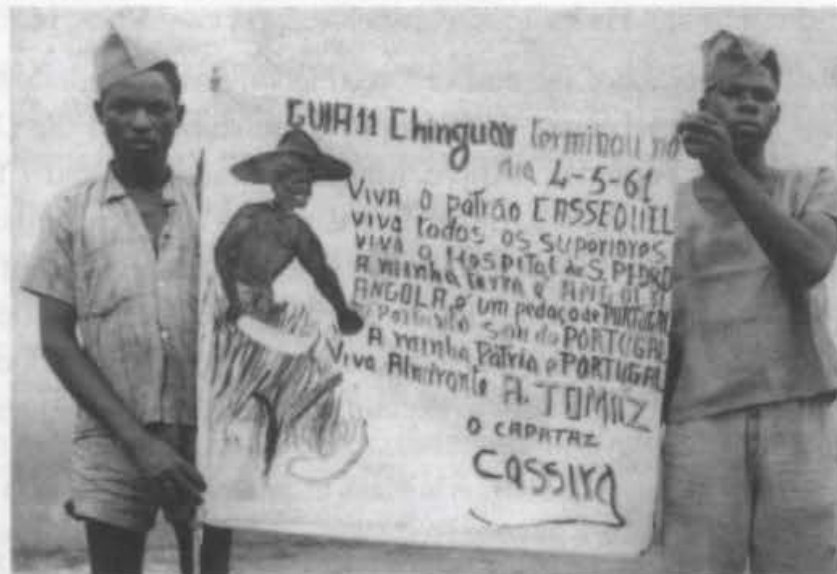 GUIA 11 Chinguar terminou no
dia 4-5-61
Viva o patrão CASSEQUEL
viva todos os superiores
viva o Hospital de S. PEDRO
A minha terra é ANGOLA
ANGOLA é um pedaço de PORTUGAL
Portanto Sou do PORTUGAL
A minha Pátria é PORTUGAL
Viva Almirante A. TOMAZ
O CAPATAZ
Cassira